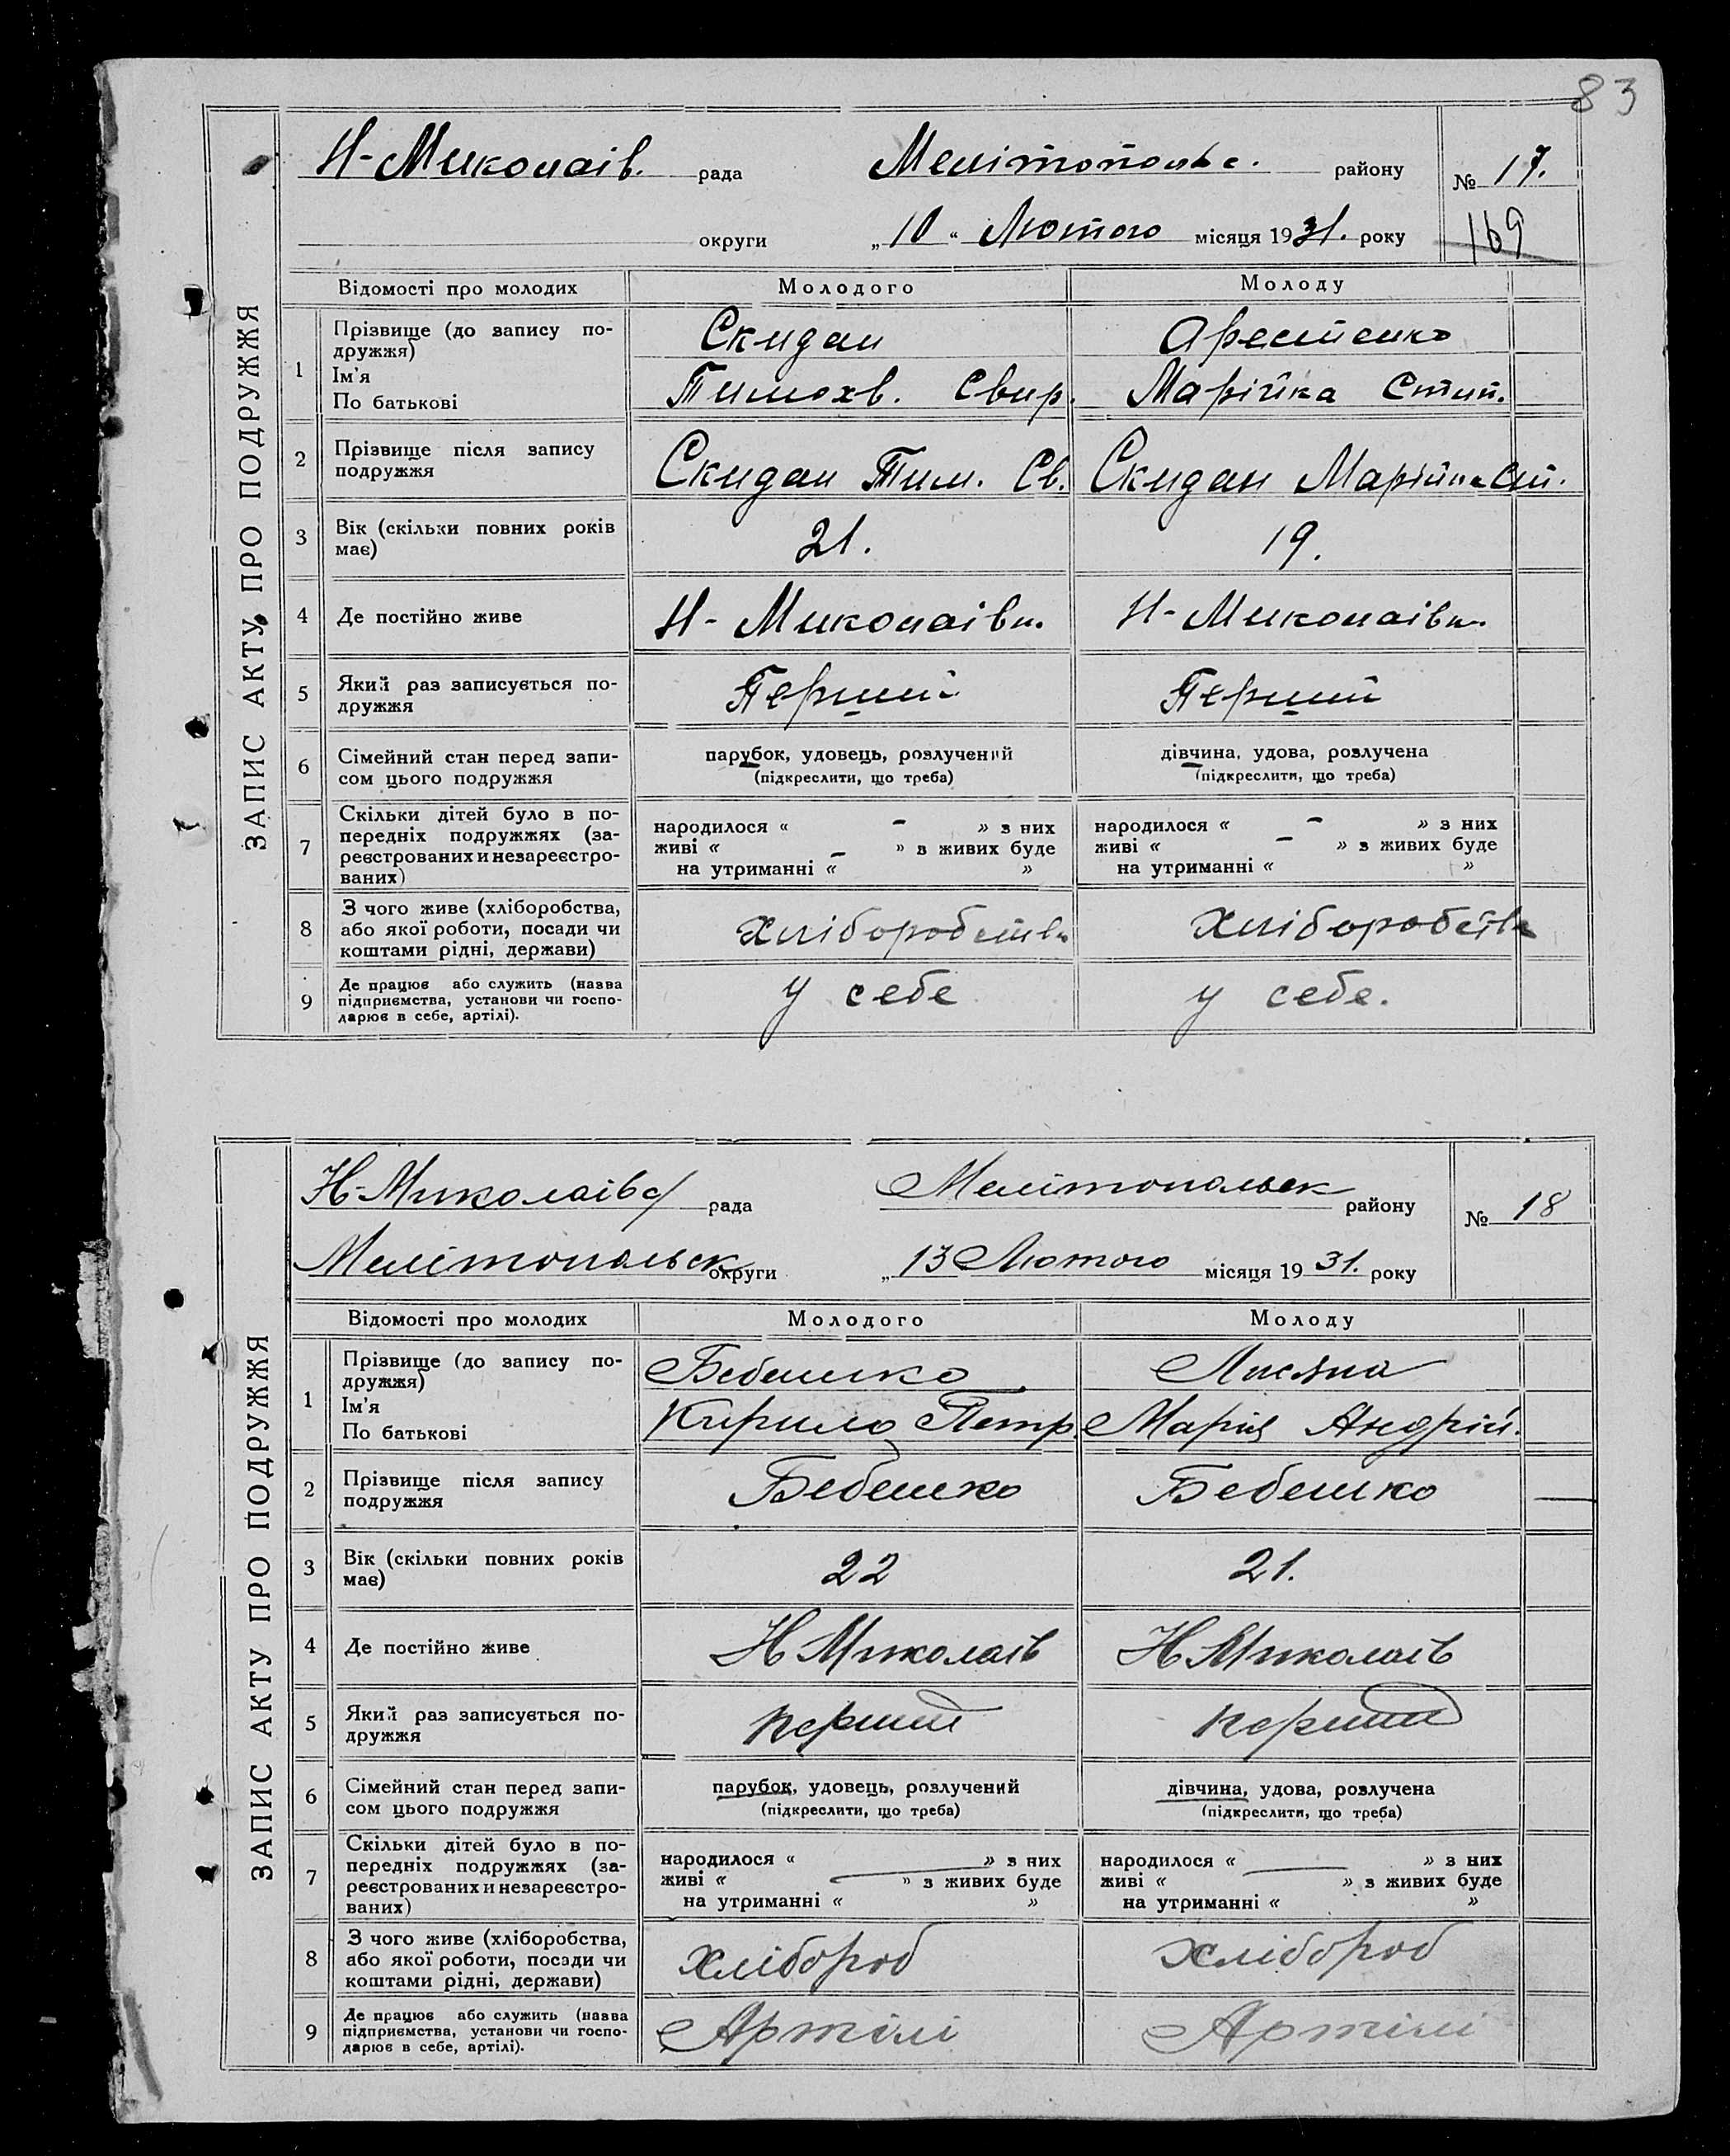 83
Н-Миколаїв. рада Мелітопольс. району № 17.
округи „10“ Лютого місяця 1931. року 169
ЗАПИС АКТУ ПРО ПОДРУЖЖЯ
Відомості про молодих Молодого Молоду
1 Прізвище (до запису по-
дружжя) Скидан Арестенко
Ім'я
По батькові Тимохв. Свир. Марійка Стип.
2 Прізвище після запису
подружжя Скидан Тим. Св. Скидан Марійка Ст.
3 Вік (скільки повних років
має) 21. 19.
4 Де постійно живе Н-Миколаівк. Н-Миколаівк.
5 Який раз записується по-
дружжя Перший Перший
6 Сімейний стан перед запи-
сом цього подружжя парубок, удовець, розлучений дівчина, удова, розлучена
(підкреслити, що треба) (підкреслити, що треба)
7 Скільки дітей було в по-
передніх подружжях (за-
реєстрованих и незареєстро-
ваних) народилося « - » з них народилося « - » з них
живі « - » з живих буде живі « - » з живих буде
на утриманні « » на утриманні « »
8 З чого живе (хліборобства,
або якої роботи, посади чи
коштами рідні, держави) Хліборобств Хліборобств
9 Де працює або служить (назва
підприємства, установи чи госпо-
дарює в себе, артілі). у себе у себе.
Н-Миколаівс/ рада Мелітопольск району № 18
Мелітопольск округи „13 Лютого місяця 1931. року
ЗАПИС АКТУ ПРО ПОДРУЖЖЯ
Відомості про молодих Молодого Молоду
1 Прізвище (до запису по-
дружжя) Бебешко
Ім'я
По батькові Кирило Петр. Марія Андрій.
2 Прізвище після запису
подружжя Бебешко Бебешко
3 Вік (скільки повних років
має) 22 21.
4 Де постійно живе Н Миколаів Н Миколаів
5 Який раз записується по-
дружжя перший перший
6 Сімейний стан перед запи-
сом цього подружжя парубок, удовець, розлучений дівчина, удова, розлучена
(підкреслити, що треба) (підкреслити, що треба)
7 Скільки дітей було в по-
передніх подружжях (за-
реєстрованих и незареєстро-
ваних) народилося « » з них народилося « » з них
живі « » з живих буде живі « » з живих буде
на утриманні « » на утриманні « »
8 З чого живе (хліборобства,
або якої роботи, посади чи
коштами рідні, держави) Хлібороб Хлібороб
9 Де працює або служить (назва
підприємства, установи чи госпо-
дарює в себе, артілі). Артілі Артілі